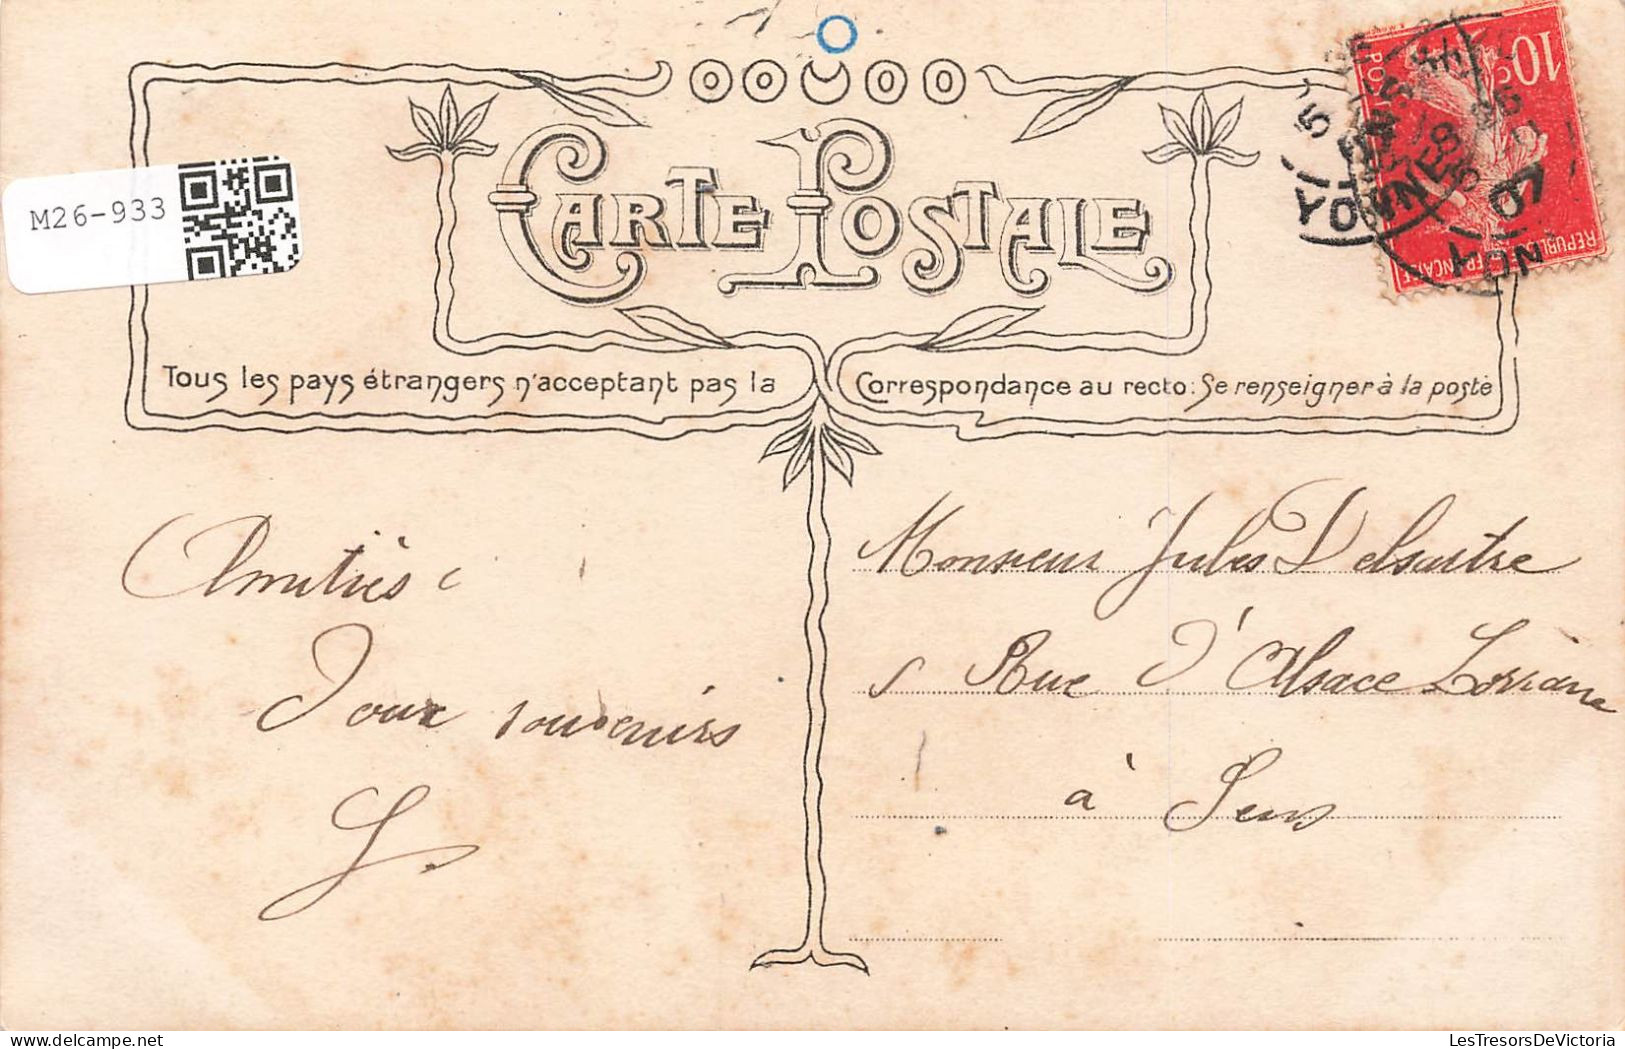 M26-933
CARTE POSTALE
10c
REPUBLIQUE FRANÇAISE
SENS
YONNE
07
Tous les pays étrangers n'acceptant pas la Correspondance au recto: Se renseigner à la poste
Amitiés
Doux souvenirs
Monsieur Jules Delsaitre
Rue D'Alsace Lorraine
à Sens
LesTresorsDeVictoria